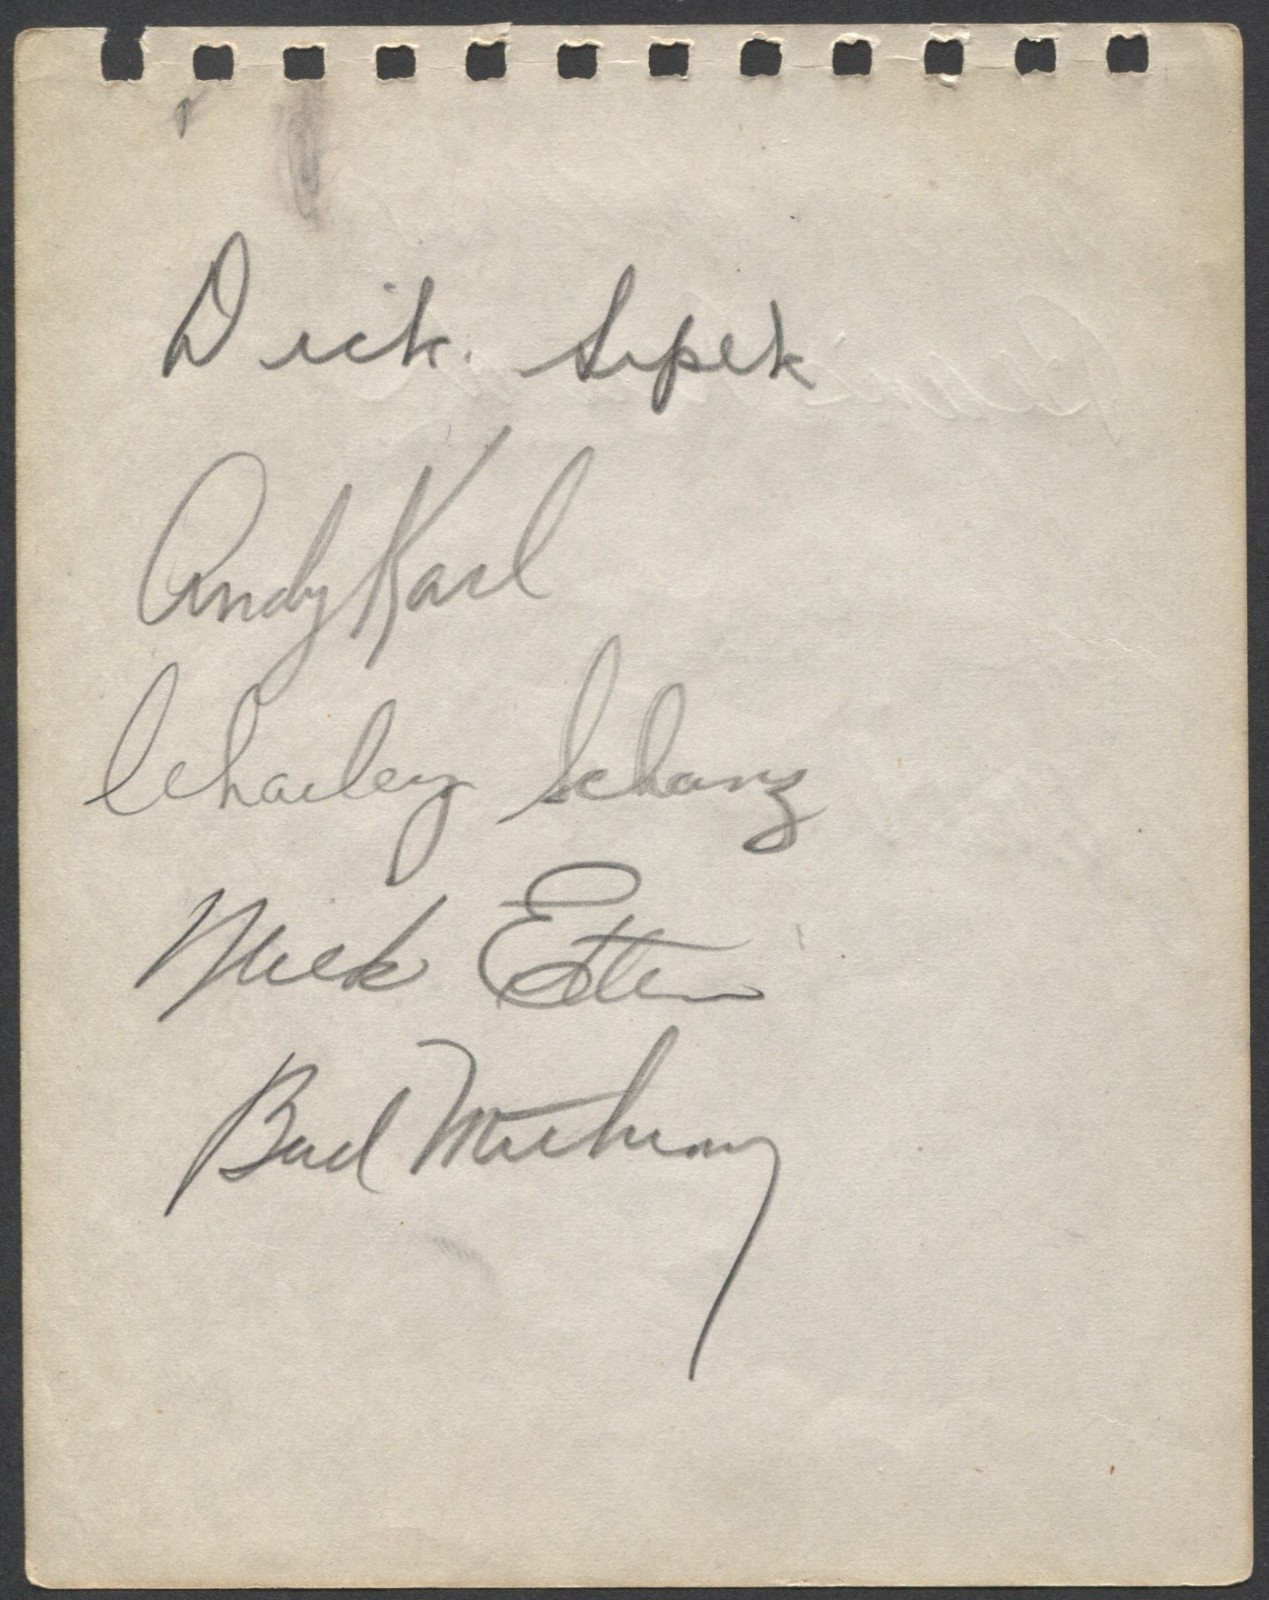 Dick Sipek
Andy Karl
Charley Schanz
Nick Etten
Bud Metheny